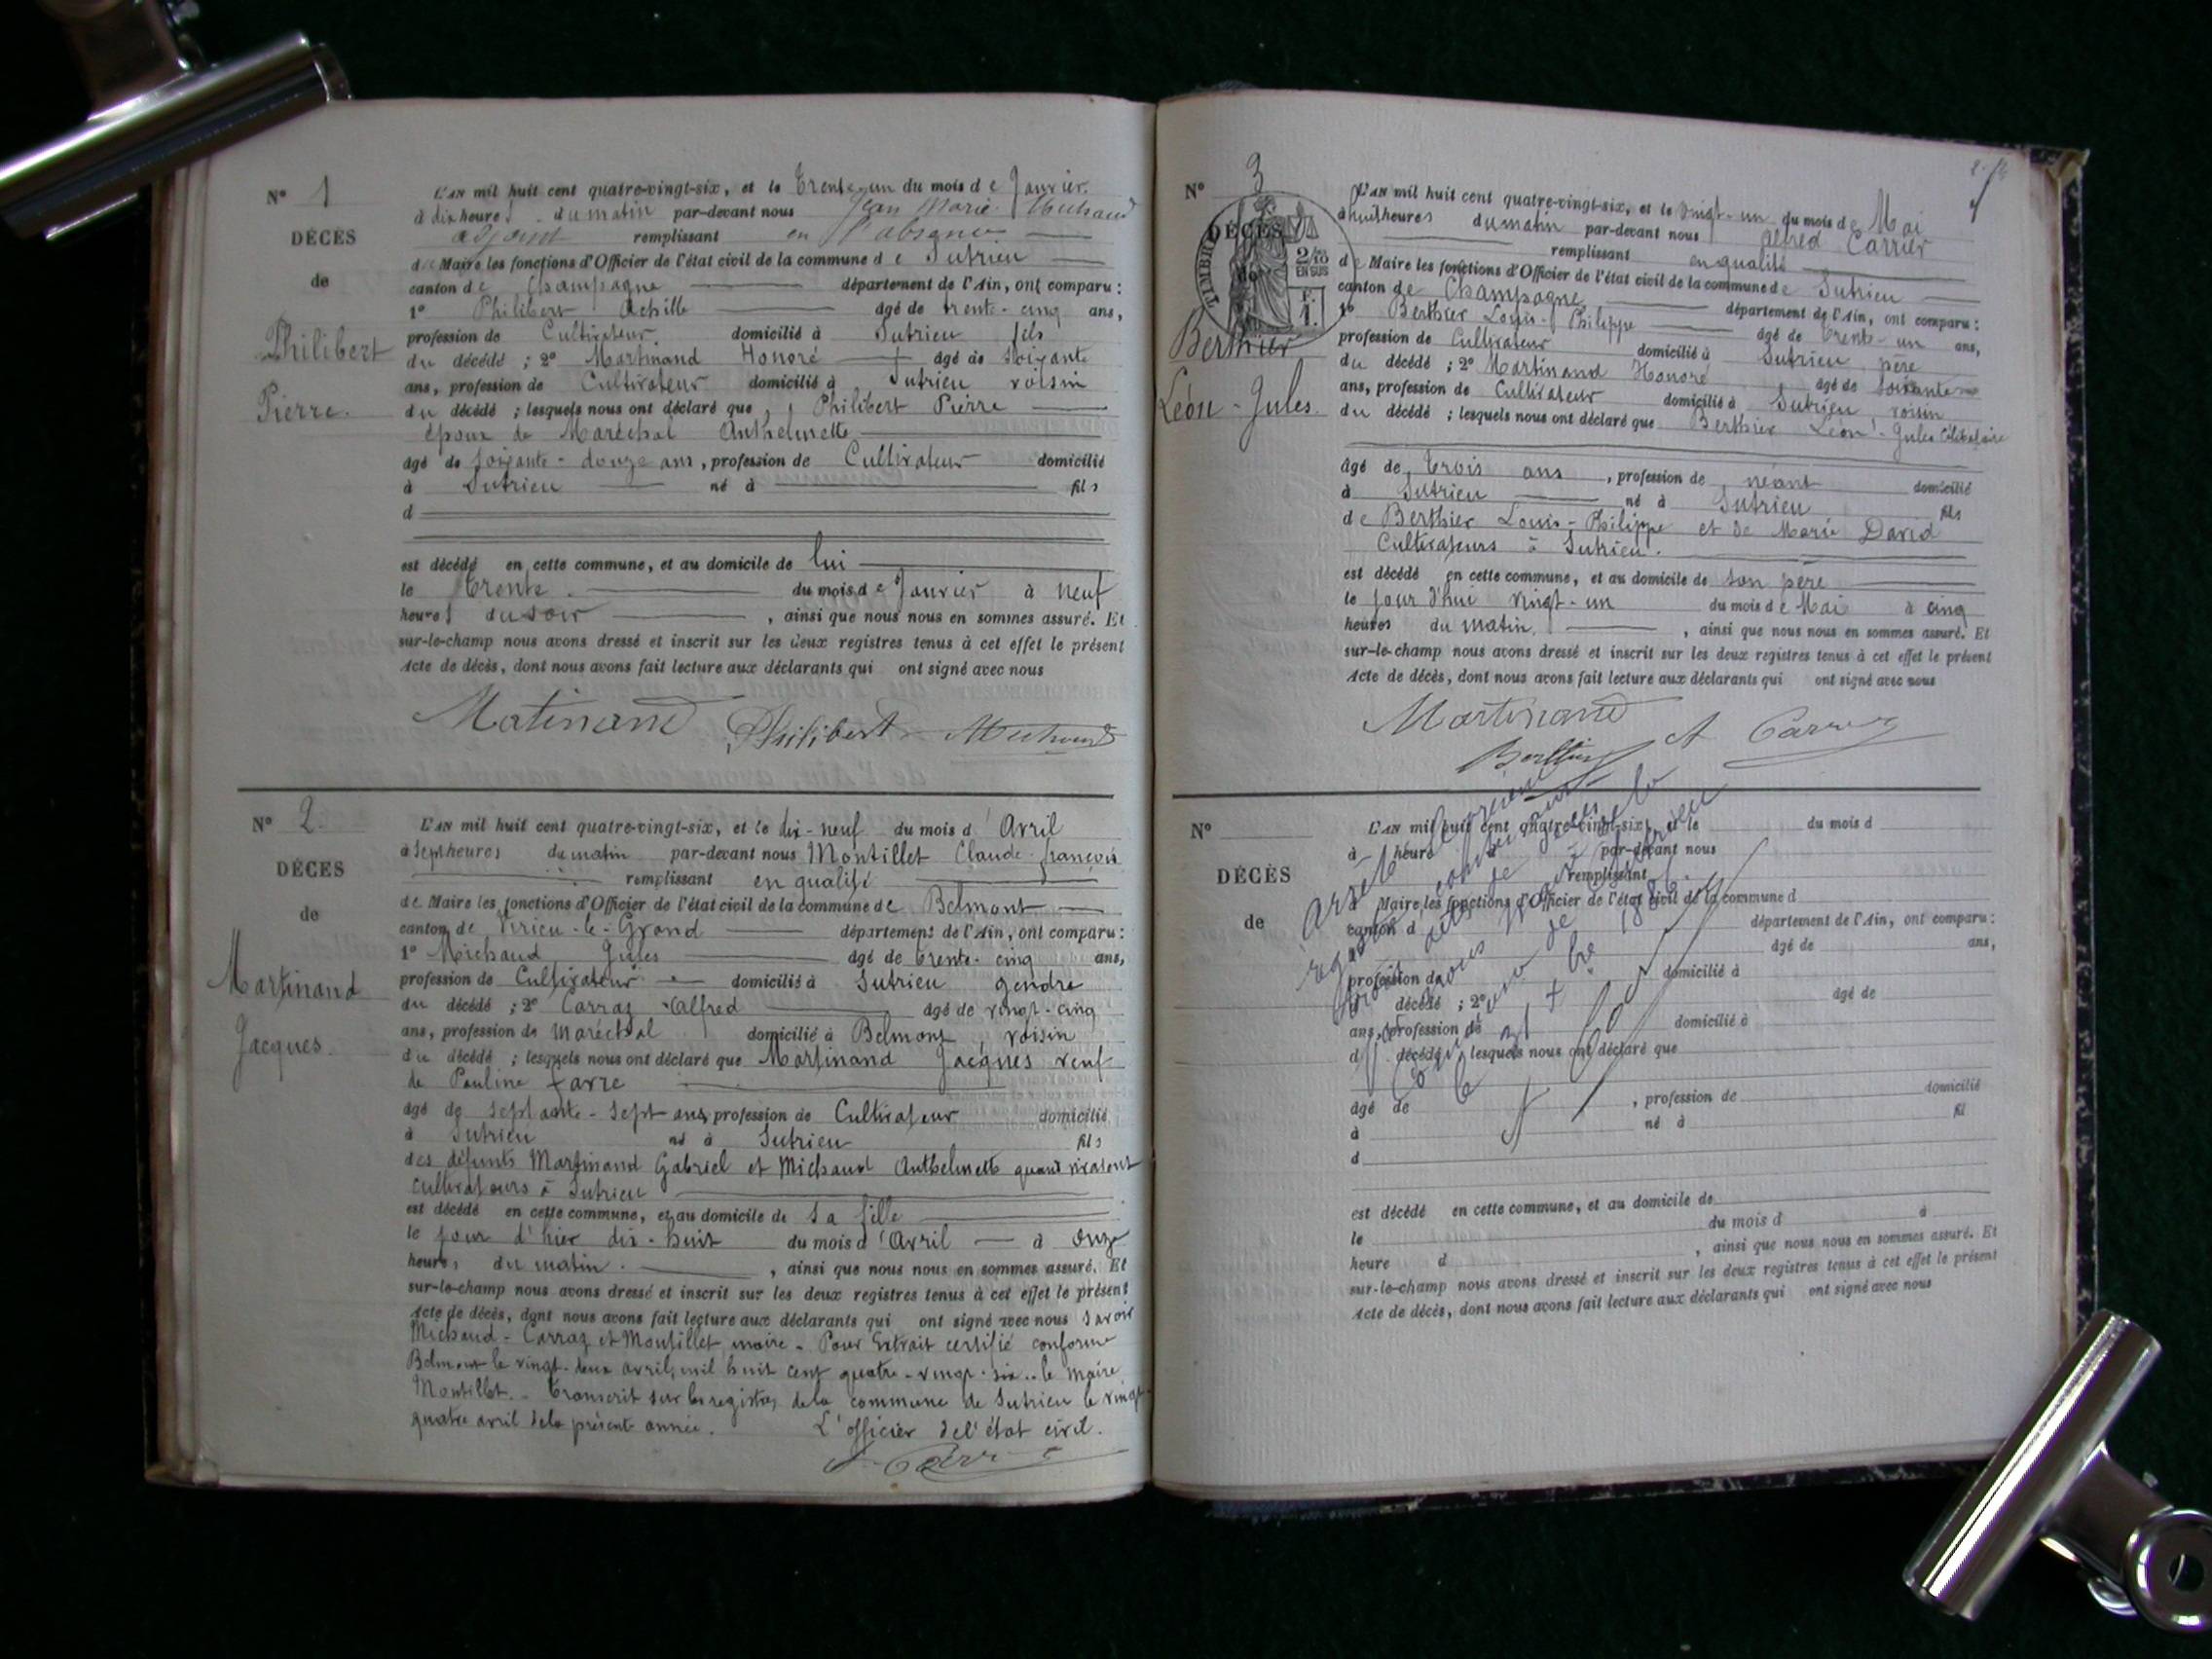 N° 1
DÉCÈS
de
Philibert
Pierre.
L'AN mil huit cent quatre-vingt-six, et le Trente-un du mois de Janvier.
à dix heures du matin par-devant nous Jean Marie Michaud
adjoint remplissant en l'absence
de Maire les fonctions d'Officier de l'état civil de la commune de Sutrieu
canton de Champagne département de l'Ain, ont comparu :
1° Philibert Achille âgé de trente-cinq ans,
profession de Cultivateur. domicilié à Sutrieu fils
du décédé ; 2° Martinand Honoré âgé de soixante
ans, profession de Cultivateur domicilié à Sutrieu voisin
du décédé ; lesquels nous ont déclaré que Philibert Pierre
époux de Maréchal Anthelmette
âgé de soixante-douze ans, profession de Cultivateur domicilié
à Sutrieu né à fils
d
est décédé en cette commune, et au domicile de lui
le Trente du mois de Janvier à neuf
heures du soir , ainsi que nous nous en sommes assuré. Et
sur-le-champ nous avons dressé et inscrit sur les deux registres tenus à cet effet le présent
Acte de décès, dont nous avons fait lecture aux déclarants qui ont signé avec nous
Matinand Philibert A Michaud
N° 2.
DÉCÈS
de
Martinand
Jacques.
L'AN mil huit cent quatre-vingt-six, et le dix-neuf du mois d'Avril
à sept heures du matin par-devant nous Montillet Claude-françois
remplissant en qualité
de Maire les fonctions d'Officier de l'état civil de la commune de Belmont
canton de Virieu-le-Grand département de l'Ain, ont comparu :
1° Michaud Jules âgé de trente-cinq ans,
profession de Cultivateur domicilié à Sutrieu gendre
du décédé ; 2° Carraz Alfred âgé de vingt-cinq
ans, profession de maréchal domicilié à Belmont voisin
du décédé ; lesquels nous ont déclaré que Martinand Jacques veuf
de Pauline Favre
âgé de septante-sept ans, profession de Cultivateur domicilié
à Sutrieu né à Sutrieu fils
des défunts Martinand Gabriel et Michaud Anthelmette quand vivaient
cultivateurs à Sutrieu
est décédé en cette commune, et au domicile de sa fille
le jour d'hier dix-huit du mois d'Avril à onze
heures du matin. , ainsi que nous nous en sommes assuré. Et
sur-le-champ nous avons dressé et inscrit sur les deux registres tenus à cet effet le présent
Acte de décès, dont nous avons fait lecture aux déclarants qui ont signé avec nous savoir
Michaud - Carraz et Montillet, maire - Pour Extrait certifié conforme
Belmont le vingt-deux avril, mil huit cent quatre-vingt-six.. le maire
Montillet. - Transcrit sur les registres de la commune de Sutrieu le vingt-
quatre avril de la présente année. L'officier de l'état civil.
A Carrier
N° 3
DÉCÈS
de
TIMBRE
2/10
EN SUS
F.
1.
Berthier
Léon-Jules.
L'AN mil huit cent quatre-vingt-six, et le vingt-un du mois de Mai
à huit heures du matin par-devant nous Alfred Carrier
remplissant en qualité
de Maire les fonctions d'Officier de l'état civil de la commune de Sutrieu
canton de Champagne département de l'Ain, ont comparu :
1° Berthier Louis-Philippe âgé de Trente-un ans,
profession de Cultivateur domicilié à Sutrieu père
du décédé ; 2° Martinand Honoré âgé de soixante
ans, profession de Cultivateur domicilié à Sutrieu voisin
du décédé ; lesquels nous ont déclaré que Berthier Léon-Jules Célibataire
âgé de Trois ans , profession de néant domicilié
à Sutrieu né à Sutrieu fils
de Berthier Louis-Philippe et de Marie David
Cultivateurs à Sutrieu.
est décédé en cette commune, et au domicile de son père
le jour d'hui vingt-un du mois de Mai à cinq
heures du matin. , ainsi que nous nous en sommes assuré. Et
sur-le-champ nous avons dressé et inscrit sur les deux registres tenus à cet effet le présent
Acte de décès, dont nous avons fait lecture aux déclarants qui ont signé avec nous
Martinand
Berthier A Carrier
N°
DÉCÈS
de
L'AN mil huit cent quatre-vingt-six, et le du mois d
à heure d par-devant nous
remplissant
d Maire les fonctions d'Officier de l'état civil de la commune d
canton d département de l'Ain, ont comparu :
1° âgé de ans,
profession de domicilié à
d décédé ; 2° âgé de
ans, profession de domicilié à
d décédé ; lesquels nous ont déclaré que
âgé de , profession de domicilié
à né à fil
d
est décédé en cette commune, et au domicile de
le du mois d à
heure d , ainsi que nous nous en sommes assuré. Et
sur-le-champ nous avons dressé et inscrit sur les deux registres tenus à cet effet le présent
Acte de décès, dont nous avons fait lecture aux déclarants qui ont signé avec nous
Arrêté le présent
registre contenant
le 31 Xbre 1886.